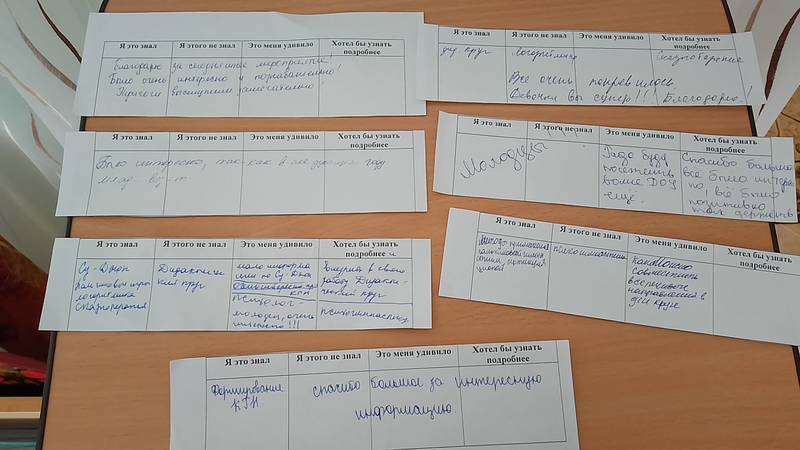 Я это знал Я этого не знал Это меня удивило Хотел бы узнать подробнее
Благодарю за сегодняшнее мероприятие!
Было очень интересно и познавательно!
Педагоги выступили замечательно!
Я это знал Я этого не знал Это меня удивило Хотел бы узнать подробнее
дид. круг
Логоритмика
Сказкотерапия
Все очень понравилось
Девочки Вы супер!!! Благодарю!
Я это знал Я этого не знал Это меня удивило Хотел бы узнать подробнее
Было интересно, так как в следующем году
млад.
Я это знал Я этого не знал Это меня удивило Хотел бы узнать подробнее
Молодцы
Рада буду
посетить
ваше ДОУ
ещё.
Спасибо большое
всё было интерес
но, всё было
позитивно
так держать
Я это знал Я этого не знал Это меня удивило Хотел бы узнать подробнее
Су-Джок
логоритмика
Дидактичес
кий круг
мало информа
ции по Су-Джок
КГН
Психолог -
молодец, очень
интересно!!!
внедрить в свою
работу Дидакти-
ческий круг
психогимнастику
Я это знал Я этого не знал Это меня удивило Хотел бы узнать подробнее
психогимнастика
как можно
совместить
все
направления в
круге
Я это знал Я этого не знал Это меня удивило Хотел бы узнать подробнее
Формирование
КГН.
спасибо большое за интересную
информацию